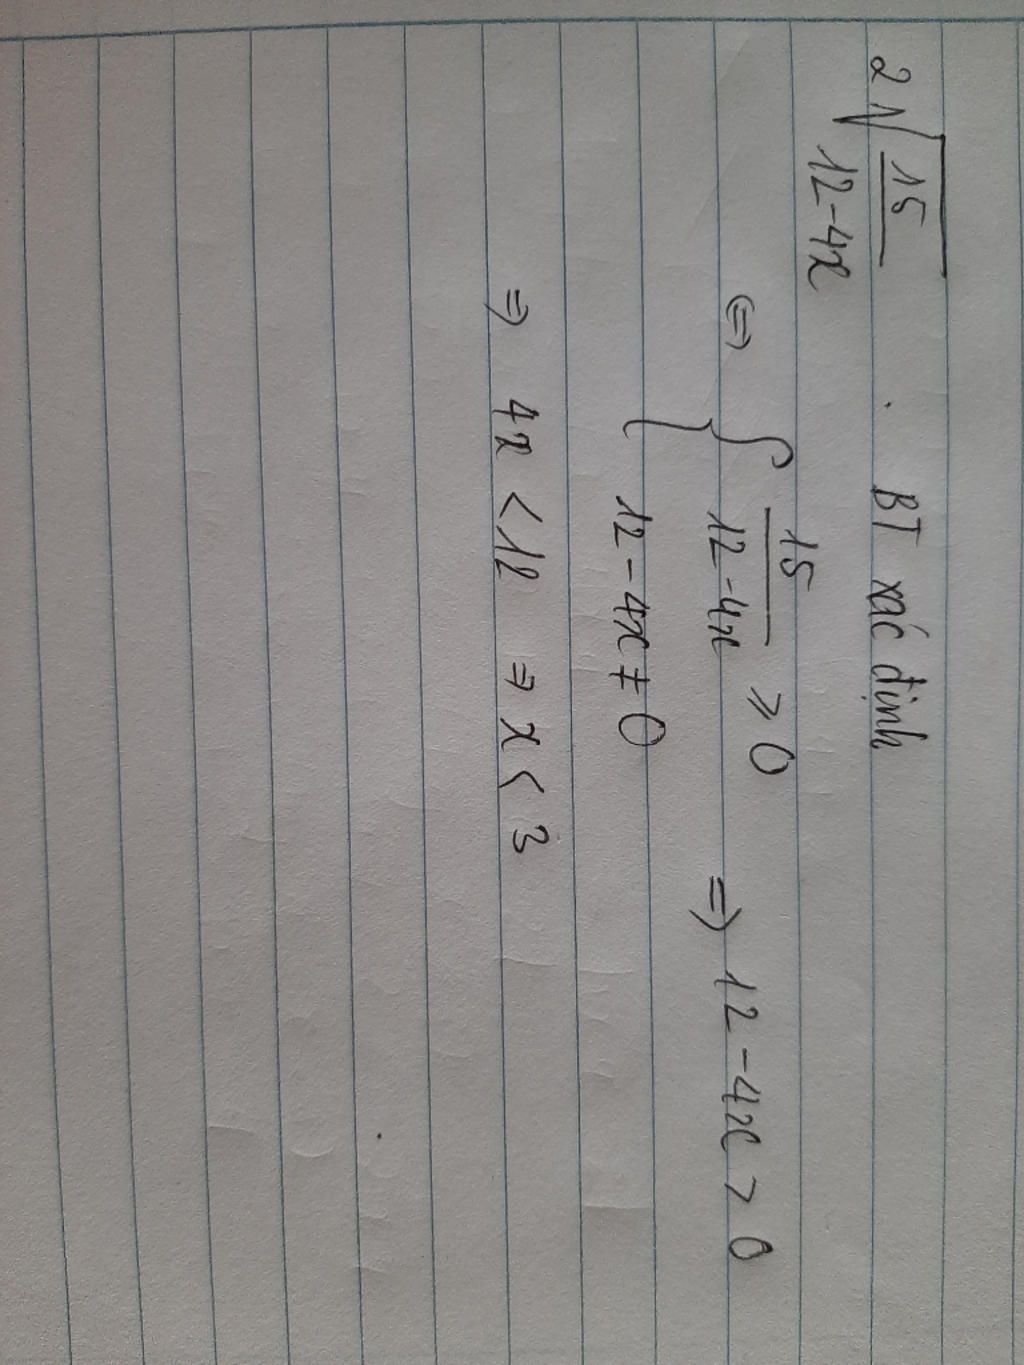 2√(15/(12-4x)) . BT xác định
⇔ { 15/(12-4x) ≥ 0 ⇒ 12-4x > 0
12-4x ≠ 0
⇒ 4x < 12 ⇒ x < 3